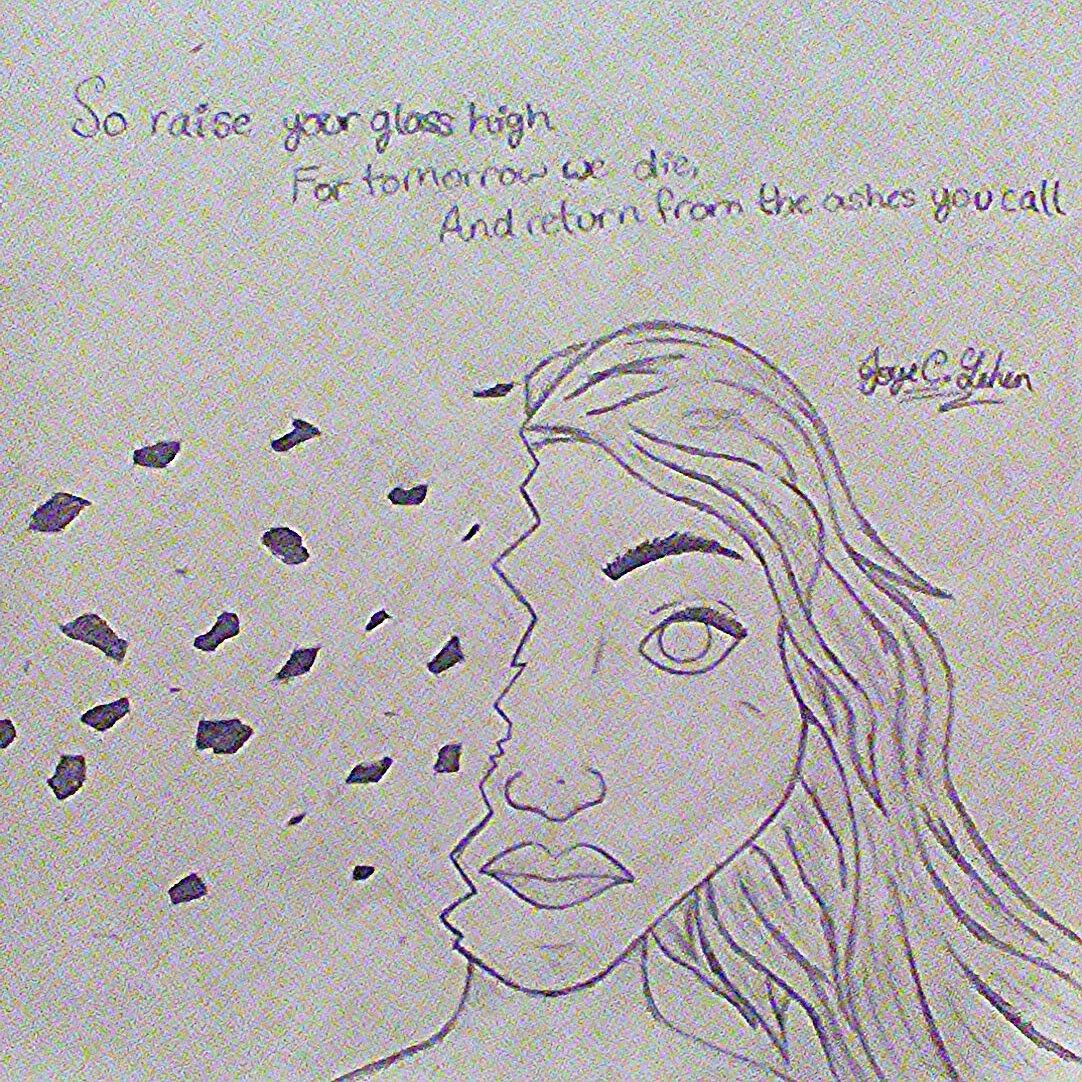 So raise your glass high
For tomorrow we die,
And return from the ashes you call